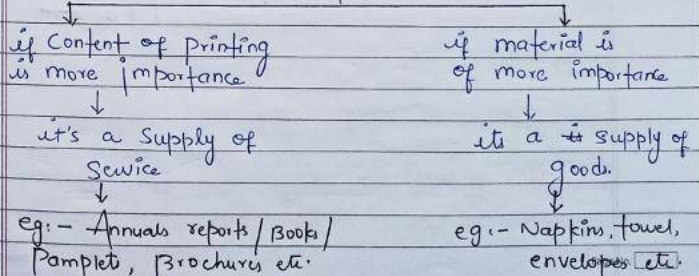 if Content of printing
is more importance
↓
it's a Supply of
Service
↓
eg:- Annuals reports / Books /
Pamplet, Brochures etc.
if material is
of more importance
↓
its a supply of
goods.
↓
eg:- Napkins, towel,
envelopes etc.